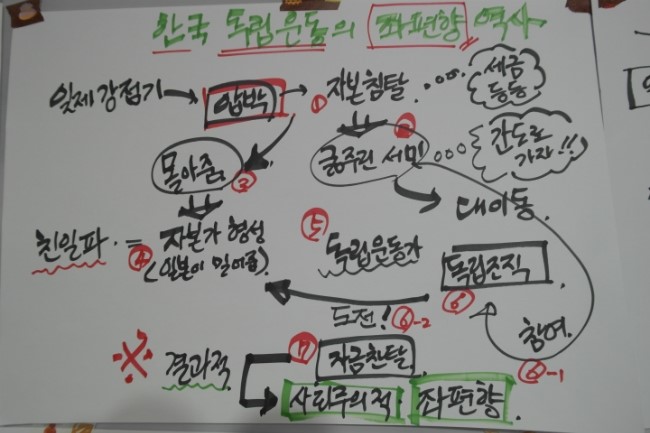 한국 독립운동의 좌편향 역사
일제강점기 → 압박 → ① 자본침탈 ... 세금 등등
몰아줌. ③
② 굶주린 서민 ... 간도로 가자!!
대이동.
친일파. = ④ 자본가 형성
(일본이 밀어줌)
⑤ 독립운동가
독립조직 ⑥
도전! ⑥-2
참여. ⑥-1
※ 결과적
⑦ 자금찬탈
사회주의적 좌편향.